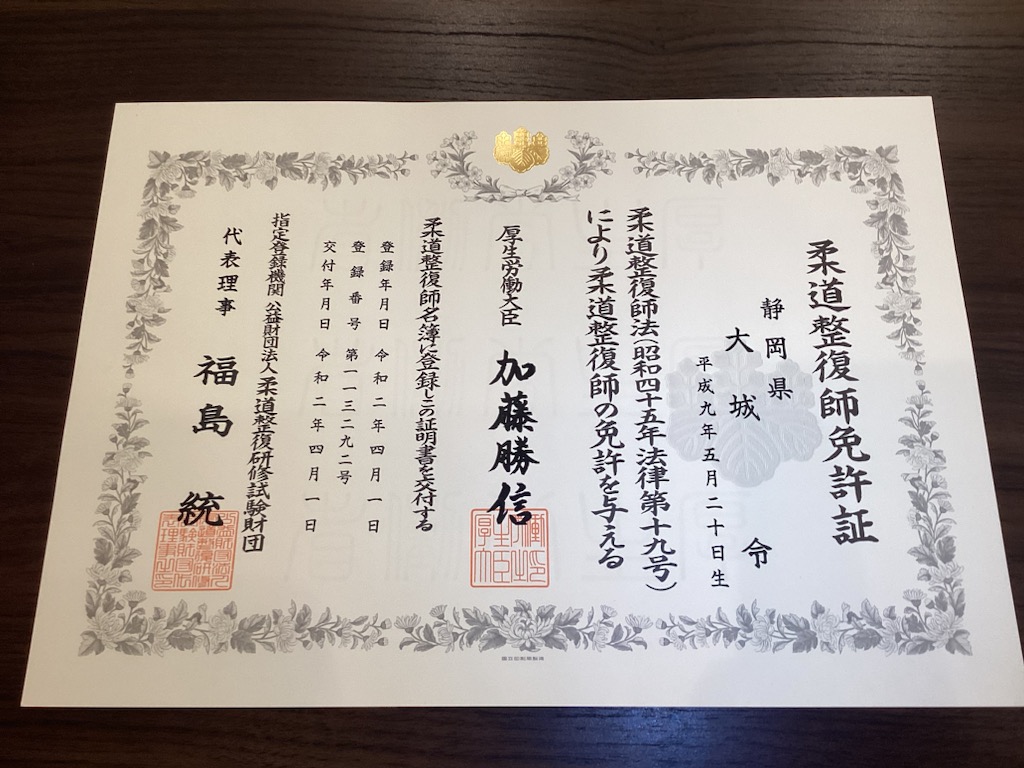 柔道整復師免許証
静岡県
大城 令
平成九年五月二十日生
柔道整復師法(昭和四十五年法律第十九号)
により柔道整復師の免許を与える
厚生労働大臣 加藤勝信
柔道整復師名簿に登録しこの証明書を交付する
登録年月日 令和二年四月一日
登録番号 第一一三二九二号
交付年月日 令和二年四月一日
指定登録機関 公益財団法人柔道整復研修試験財団
代表理事 福島 統